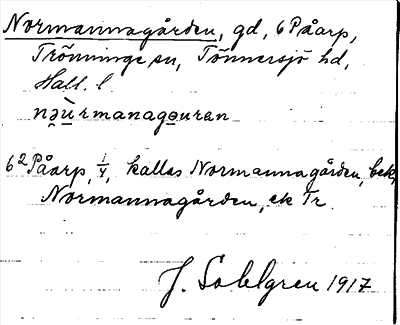 Normannagården, gd, 6 Påarp,
Trönninge sn, Tönnersjö hd,
Hall. l
nə̯ù̯rmanagɵuran
6² Påarp, ¼, kallas Normannagården, bek,
Normannagården, ek Tr.
J. Sahlgren 1917